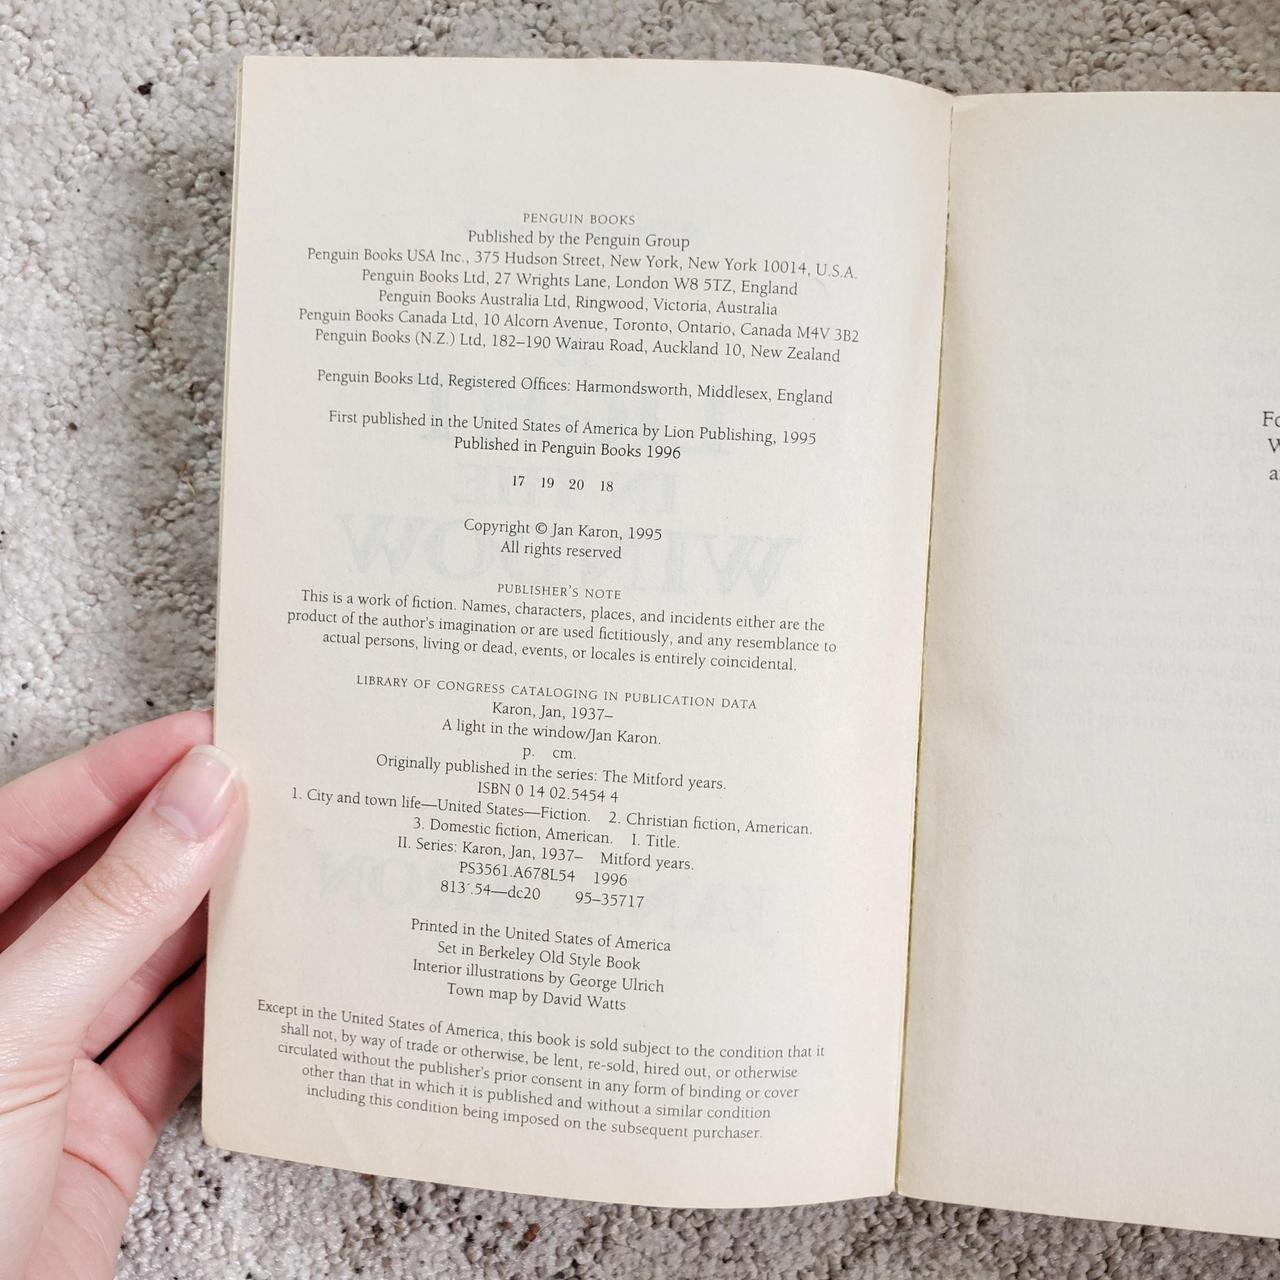 PENGUIN BOOKS
Published by the Penguin Group
Penguin Books USA Inc., 375 Hudson Street, New York, New York 10014, U.S.A.
Penguin Books Ltd, 27 Wrights Lane, London W8 5TZ, England
Penguin Books Australia Ltd, Ringwood, Victoria, Australia
Penguin Books Canada Ltd, 10 Alcorn Avenue, Toronto, Ontario, Canada M4V 3B2
Penguin Books (N.Z.) Ltd, 182–190 Wairau Road, Auckland 10, New Zealand
Penguin Books Ltd, Registered Offices: Harmondsworth, Middlesex, England
First published in the United States of America by Lion Publishing, 1995
Published in Penguin Books 1996
17 19 20 18
Copyright © Jan Karon, 1995
All rights reserved
PUBLISHER'S NOTE
This is a work of fiction. Names, characters, places, and incidents either are the
product of the author's imagination or are used fictitiously, and any resemblance to
actual persons, living or dead, events, or locales is entirely coincidental.
LIBRARY OF CONGRESS CATALOGING IN PUBLICATION DATA
Karon, Jan, 1937–
A light in the window/Jan Karon.
p. cm.
Originally published in the series: The Mitford years.
ISBN 0 14 02.5454 4
1. City and town life—United States—Fiction. 2. Christian fiction, American.
3. Domestic fiction, American. I. Title.
II. Series: Karon, Jan, 1937– Mitford years.
PS3561.A678L54 1996
813´.54—dc20 95–35717
Printed in the United States of America
Set in Berkeley Old Style Book
Interior illustrations by George Ulrich
Town map by David Watts
Except in the United States of America, this book is sold subject to the condition that it
shall not, by way of trade or otherwise, be lent, re-sold, hired out, or otherwise
circulated without the publisher's prior consent in any form of binding or cover
other than that in which it is published and without a similar condition
including this condition being imposed on the subsequent purchaser.